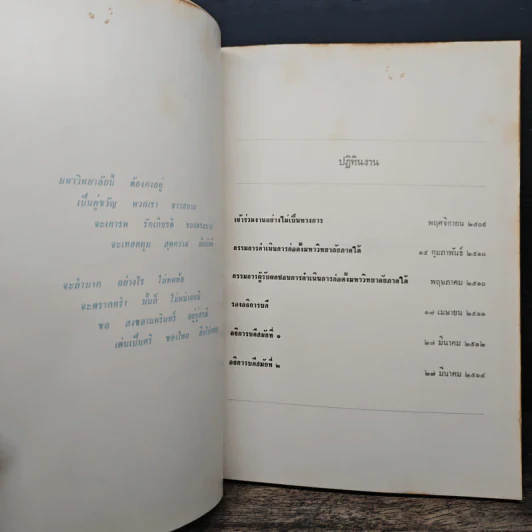 มหาวิทยาลัยนี้ ต้องคงอยู่
เป็นคู่ขวัญ พวกเรา ชาวสยาม
จะเคารพ รักเกียรติ ของพระนาม
จะเทอดทูน สุดความ
จะลำบาก อย่างไร ไม่ท้อถอย
จะตรากตรำ นั้นก็
ขอ สงขลานครินทร์ อยู่คู่
เด่นเป็นศรี ของไทย
ปฏิทินงาน
เข้าร่วมงานอย่างไม่เป็นทางการ พฤศจิกายน ๒๕๐๙
กรรมการดำเนินการก่อตั้งมหาวิทยาลัยภาคใต้ ๑๕ กุมภาพันธ์ ๒๕๑๐
กรรมการผู้รับผิดชอบการดำเนินการก่อตั้งมหาวิทยาลัยภาคใต้ พฤษภาคม ๒๕๑๐
รองอธิการบดี ๑๗ เมษายน ๒๕๑๑
อธิการบดีสมัยที่ ๑ ๒๗ มีนาคม ๒๕๑๒
อธิการบดีสมัยที่ ๒ ๒๗ มีนาคม ๒๕๑๔